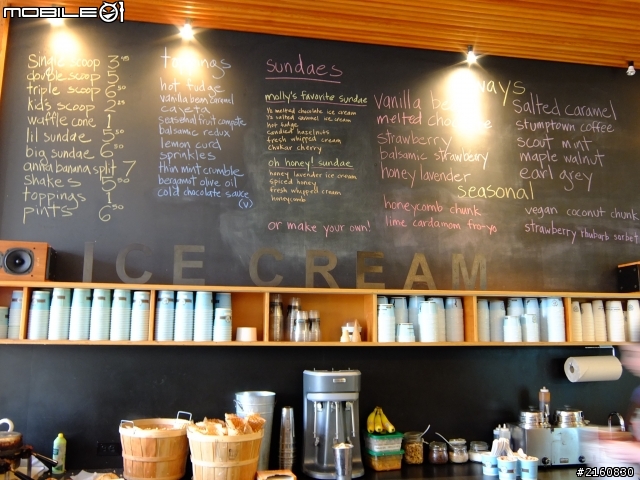 MOBILE01
single scoop 3
double scoop 5
triple scoop 6.50
kid's scoop 2
waffle cone 1
lil sundae 5
big sundae 6.50
anna banana split 7
shakes 5.50
toppings 1
pints 6.50
toppings
hot fudge
vanilla bean caramel
cajeta
seasonal fruit compote
balsamic redux
lemon curd
sprinkles
thin mint crumble
bergamot olive oil
cold chocolate sauce
(v)
sundaes
molly's favorite sundae
melted chocolate ice cream
salted caramel ice cream
hot fudge
candied hazelnuts
fresh whipped cream
chukar cherry
oh honey! sundae
honey lavender ice cream
spiced honey
fresh whipped cream
honeycomb
or make your own!
vanilla
melted
strawberry
balsamic strawberry
honey lavender
salted caramel
stumptown coffee
scout mint
maple walnut
earl grey
seasonal
honeycomb chunk
lime cardamom fro-yo
vegan coconut chunk
strawberry rhubarb sorbet
ICE CREAM
#2160830